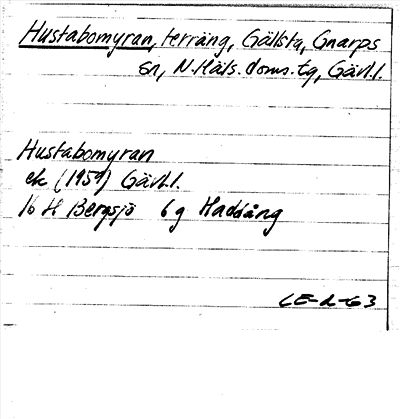 Hustabomyran, terräng, Gällsta, Gnarps
sn, N.Häls.doms.tg, Gävl.l.
Hustabomyran
ek (1959) Gävl.l.
16 H Bergsjö 6 g Haddång
CE-L-63